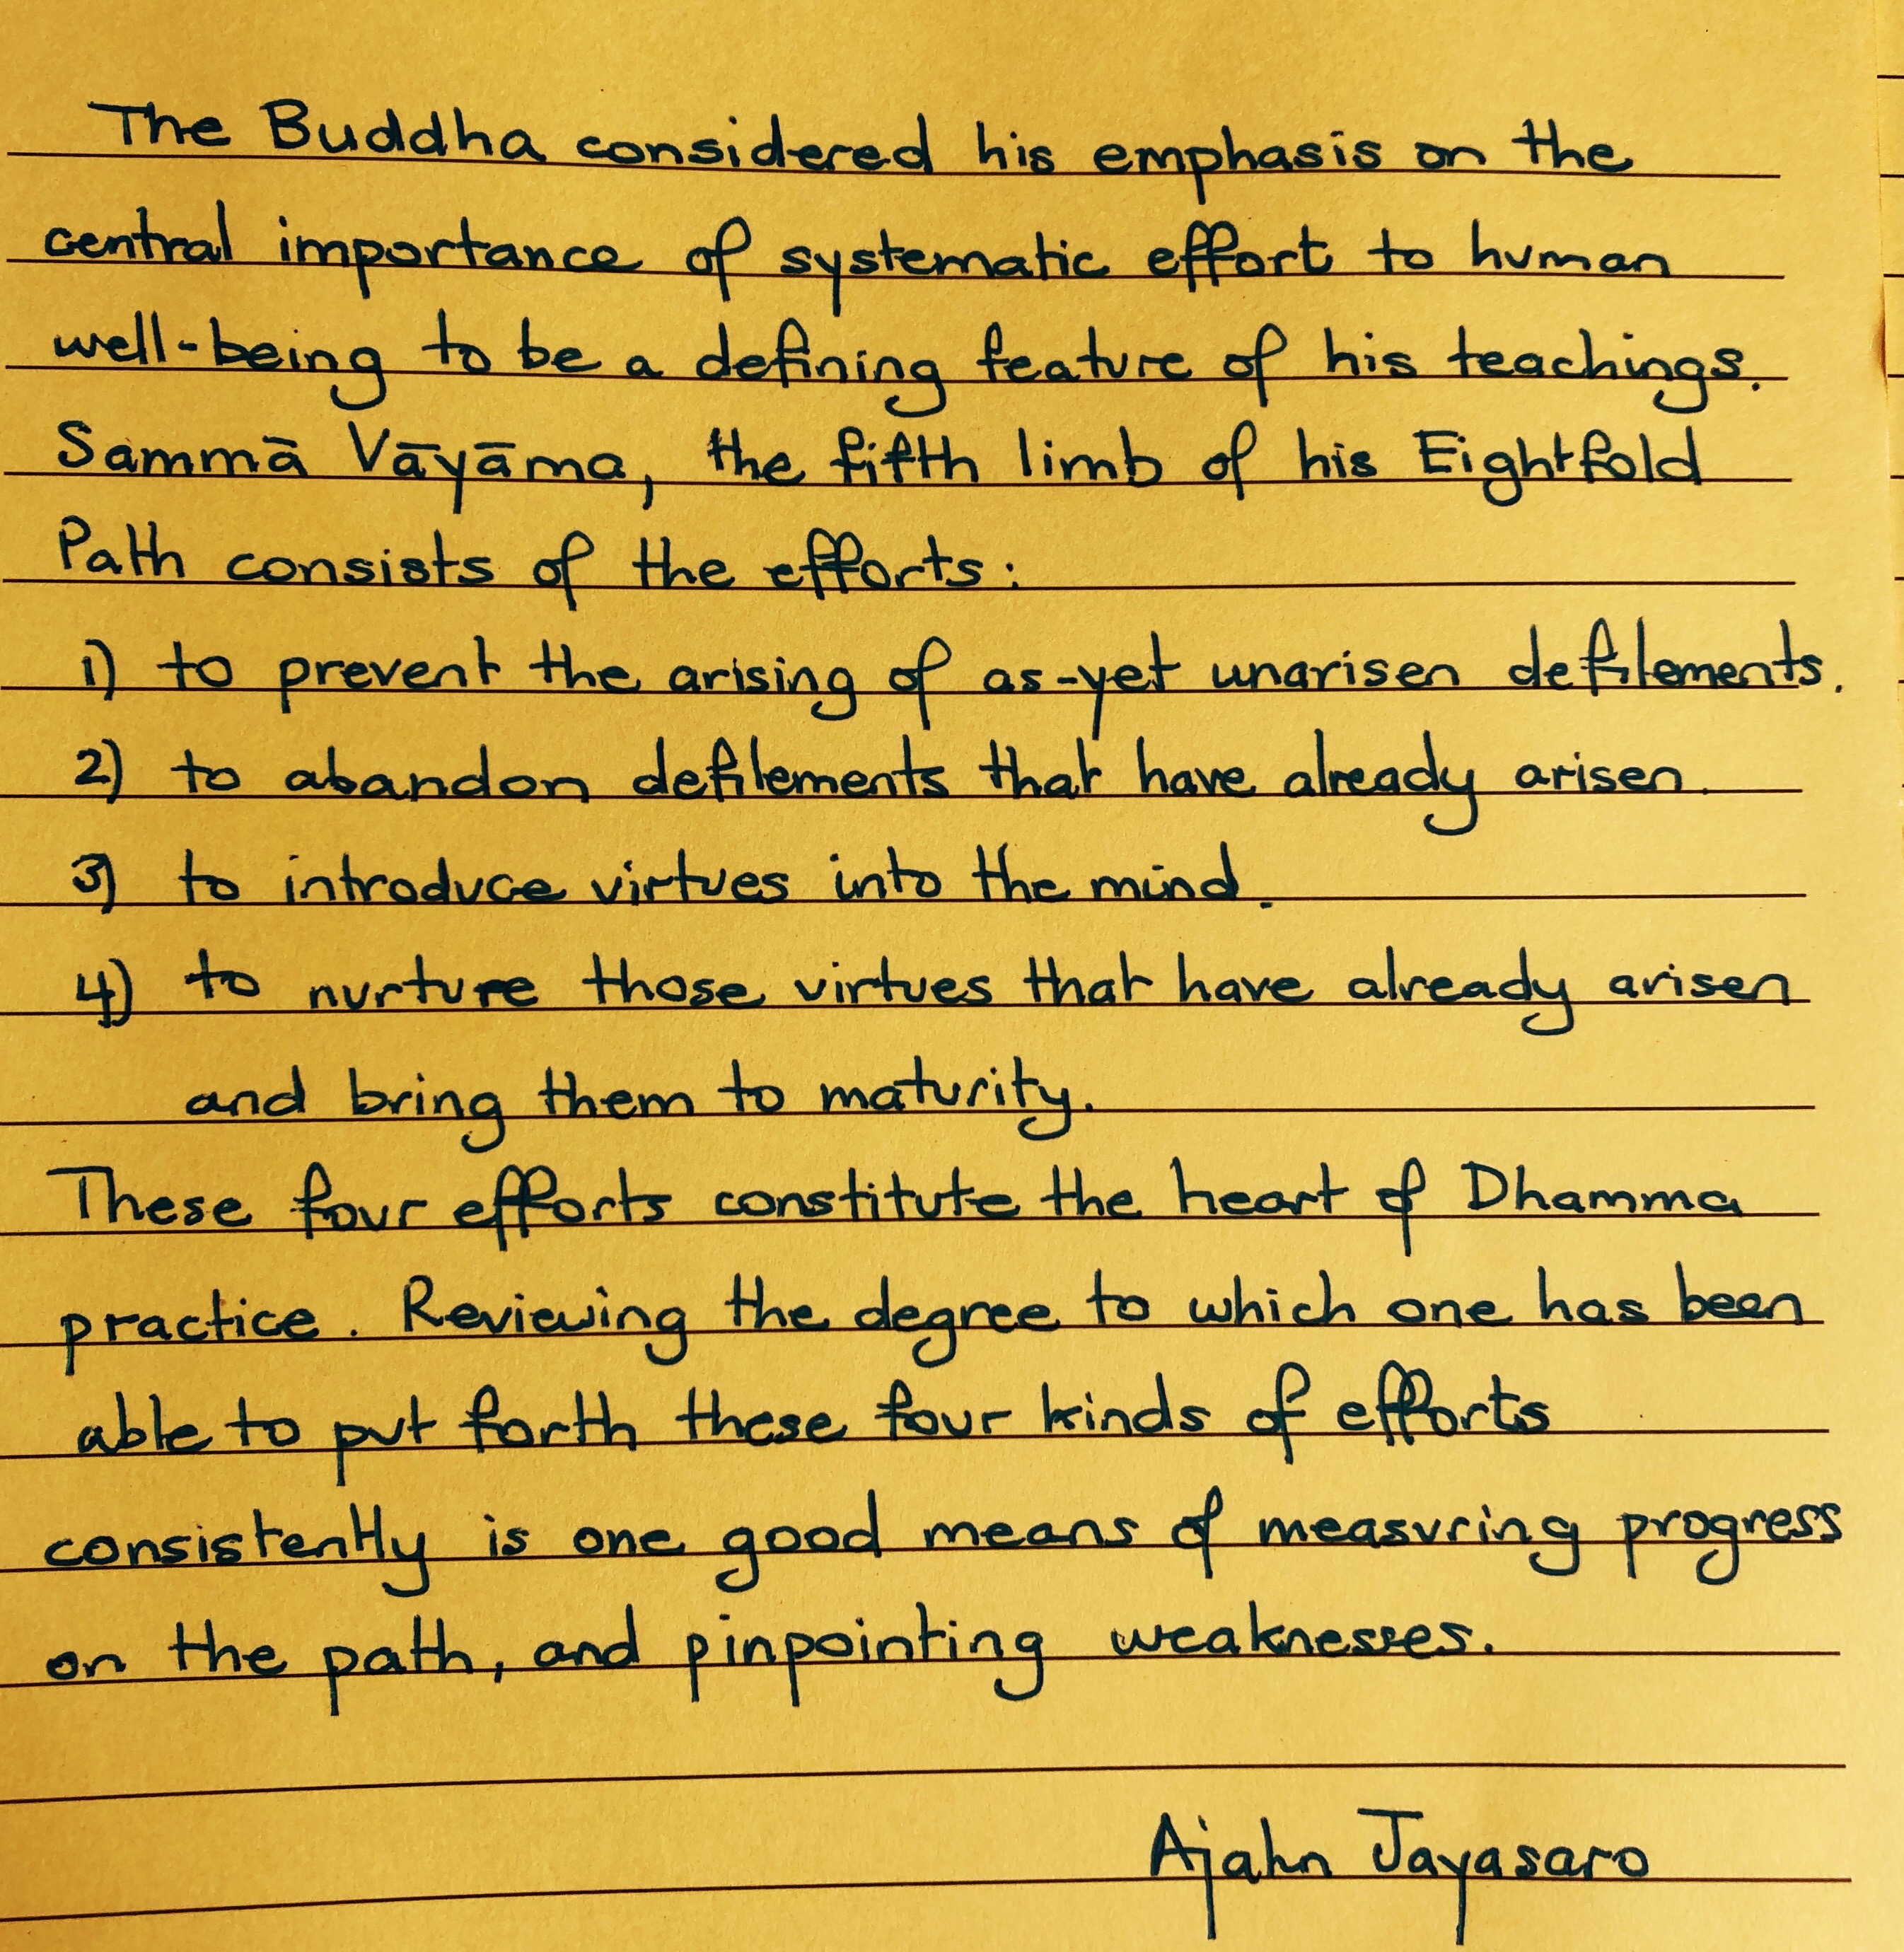 The Buddha considered his emphasis on the
central importance of systematic effort to human
well-being to be a defining feature of his teachings.
Sammā Vāyāma, the fifth limb of his Eightfold
Path consists of the efforts:
1) to prevent the arising of as-yet unarisen defilements.
2) to abandon defilements that have already arisen.
3) to introduce virtues into the mind.
4) to nurture those virtues that have already arisen
and bring them to maturity.
These four efforts constitute the heart of Dhamma
practice. Reviewing the degree to which one has been
able to put forth these four kinds of efforts
consistently is one good means of measuring progress
on the path, and pinpointing weaknesses.
Ajahn Jayasaro